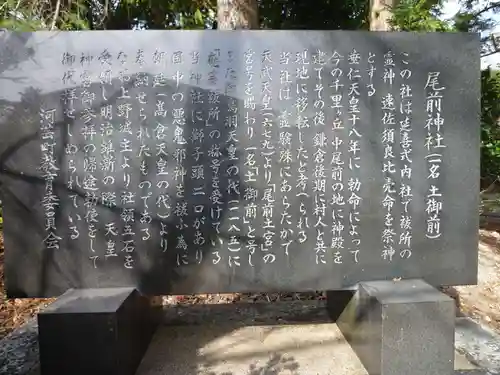 尾前神社(一名 土御前)
この社は延喜式内社で祓所の
霊神 速佐須良比売命を祭神
とする
安仁天皇十八年に 勅命によって
今の千里ヶ丘中尾前の地に神殿を
建てその後 鎌倉後期に村人と共に
現地に移転したと考えられる
当社は 霊験殊にあらたかで
天武天皇(六七九)より「尾前土宮」の
宮号を賜わり 一名「土御前」と号し
また 後鳥羽天皇の代(一一八五)に
「祓霊祓所」の称号を受けている
当神社に獅子頭二口があり
国中の悪鬼邪神を祓ふ為に
朝廷(高倉天皇の代)より
奉献せられたものである
なお上野城主より社領五石を
受領し明治維新の際 天皇
神宮御参拝の帰途勅使をして
御代拝せしめられている
河芸町教育委員会